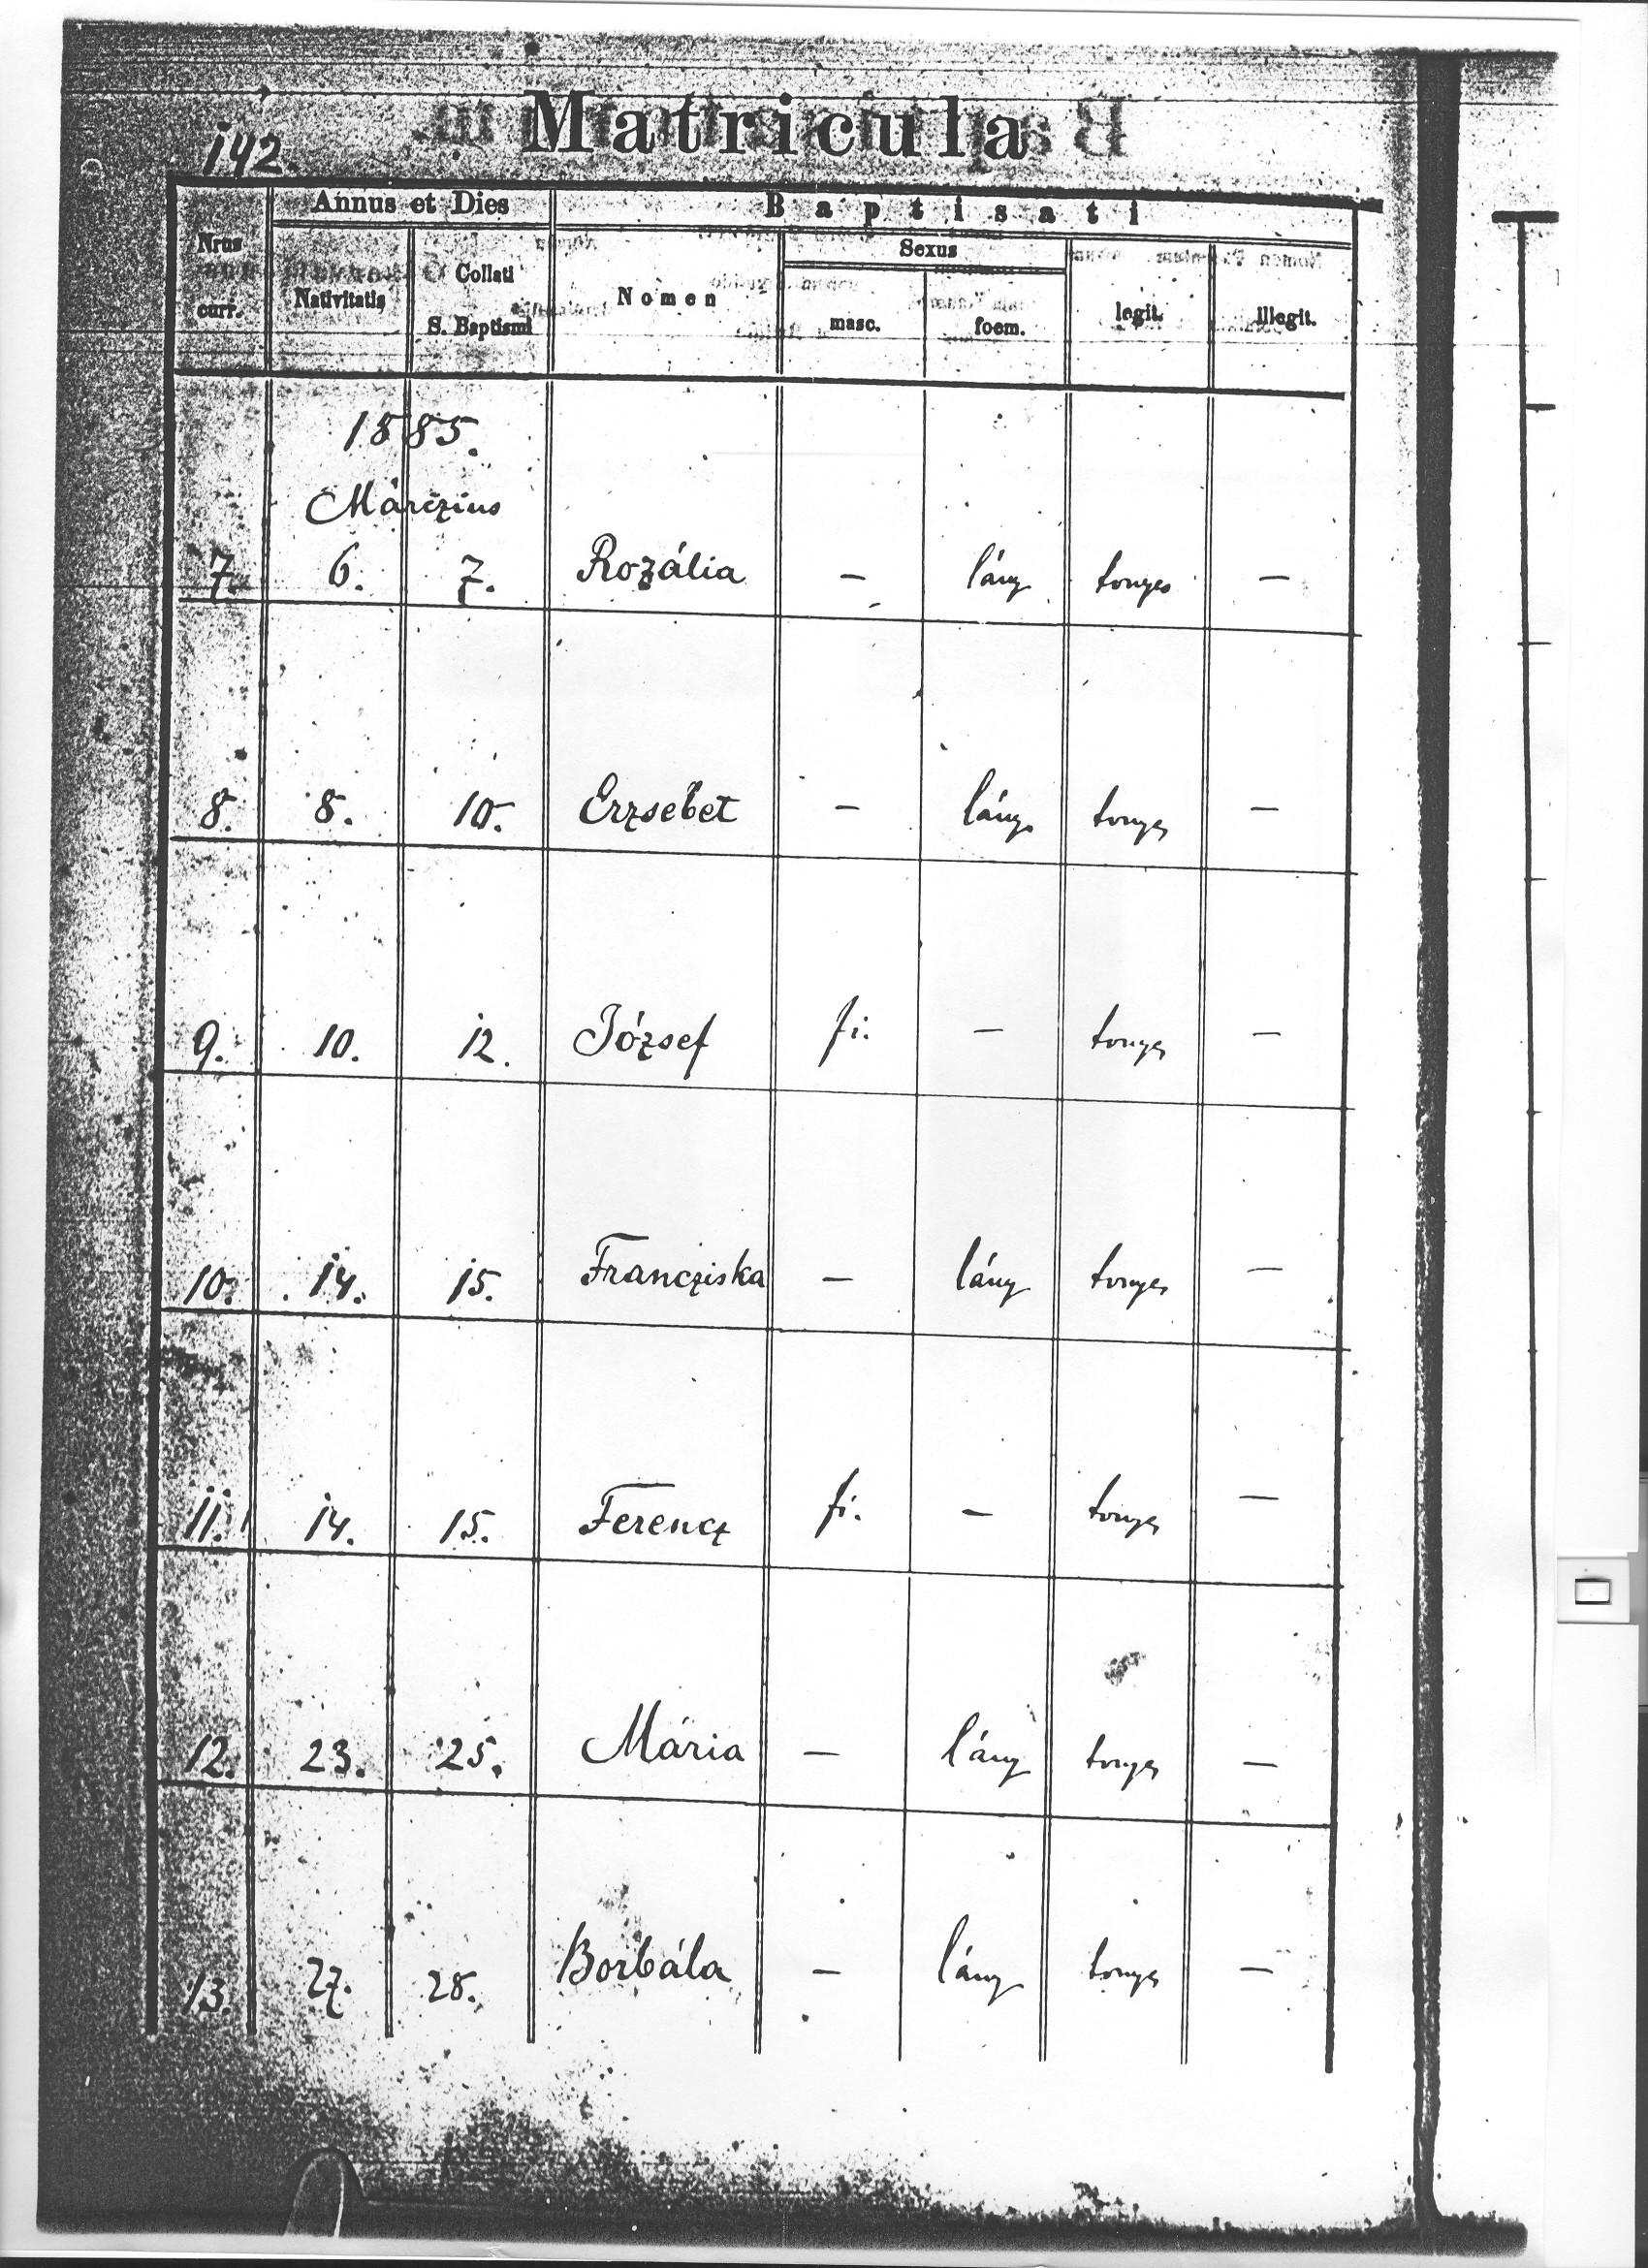 142.
Matricula
Annus et Dies
Baptisati
Nrus curr.
Nativitatis
Collati S. Baptismi
Nomen
Sexus
masc.
foem.
legit.
illegit.
1885.
Márczius
7. 6. 7. Rozália — lány tvnyes —
8. 8. 10. Erzsébet — lány tvnyes —
9. 10. 12. József fi. — tvnyes —
10. 14. 15. Francziska — lány tvnyes —
11. 14. 15. Ferencz fi. — tvnyes —
12. 23. 25. Mária — lány tvnyes —
13. 27. 28. Borbála — lány tvnyes —